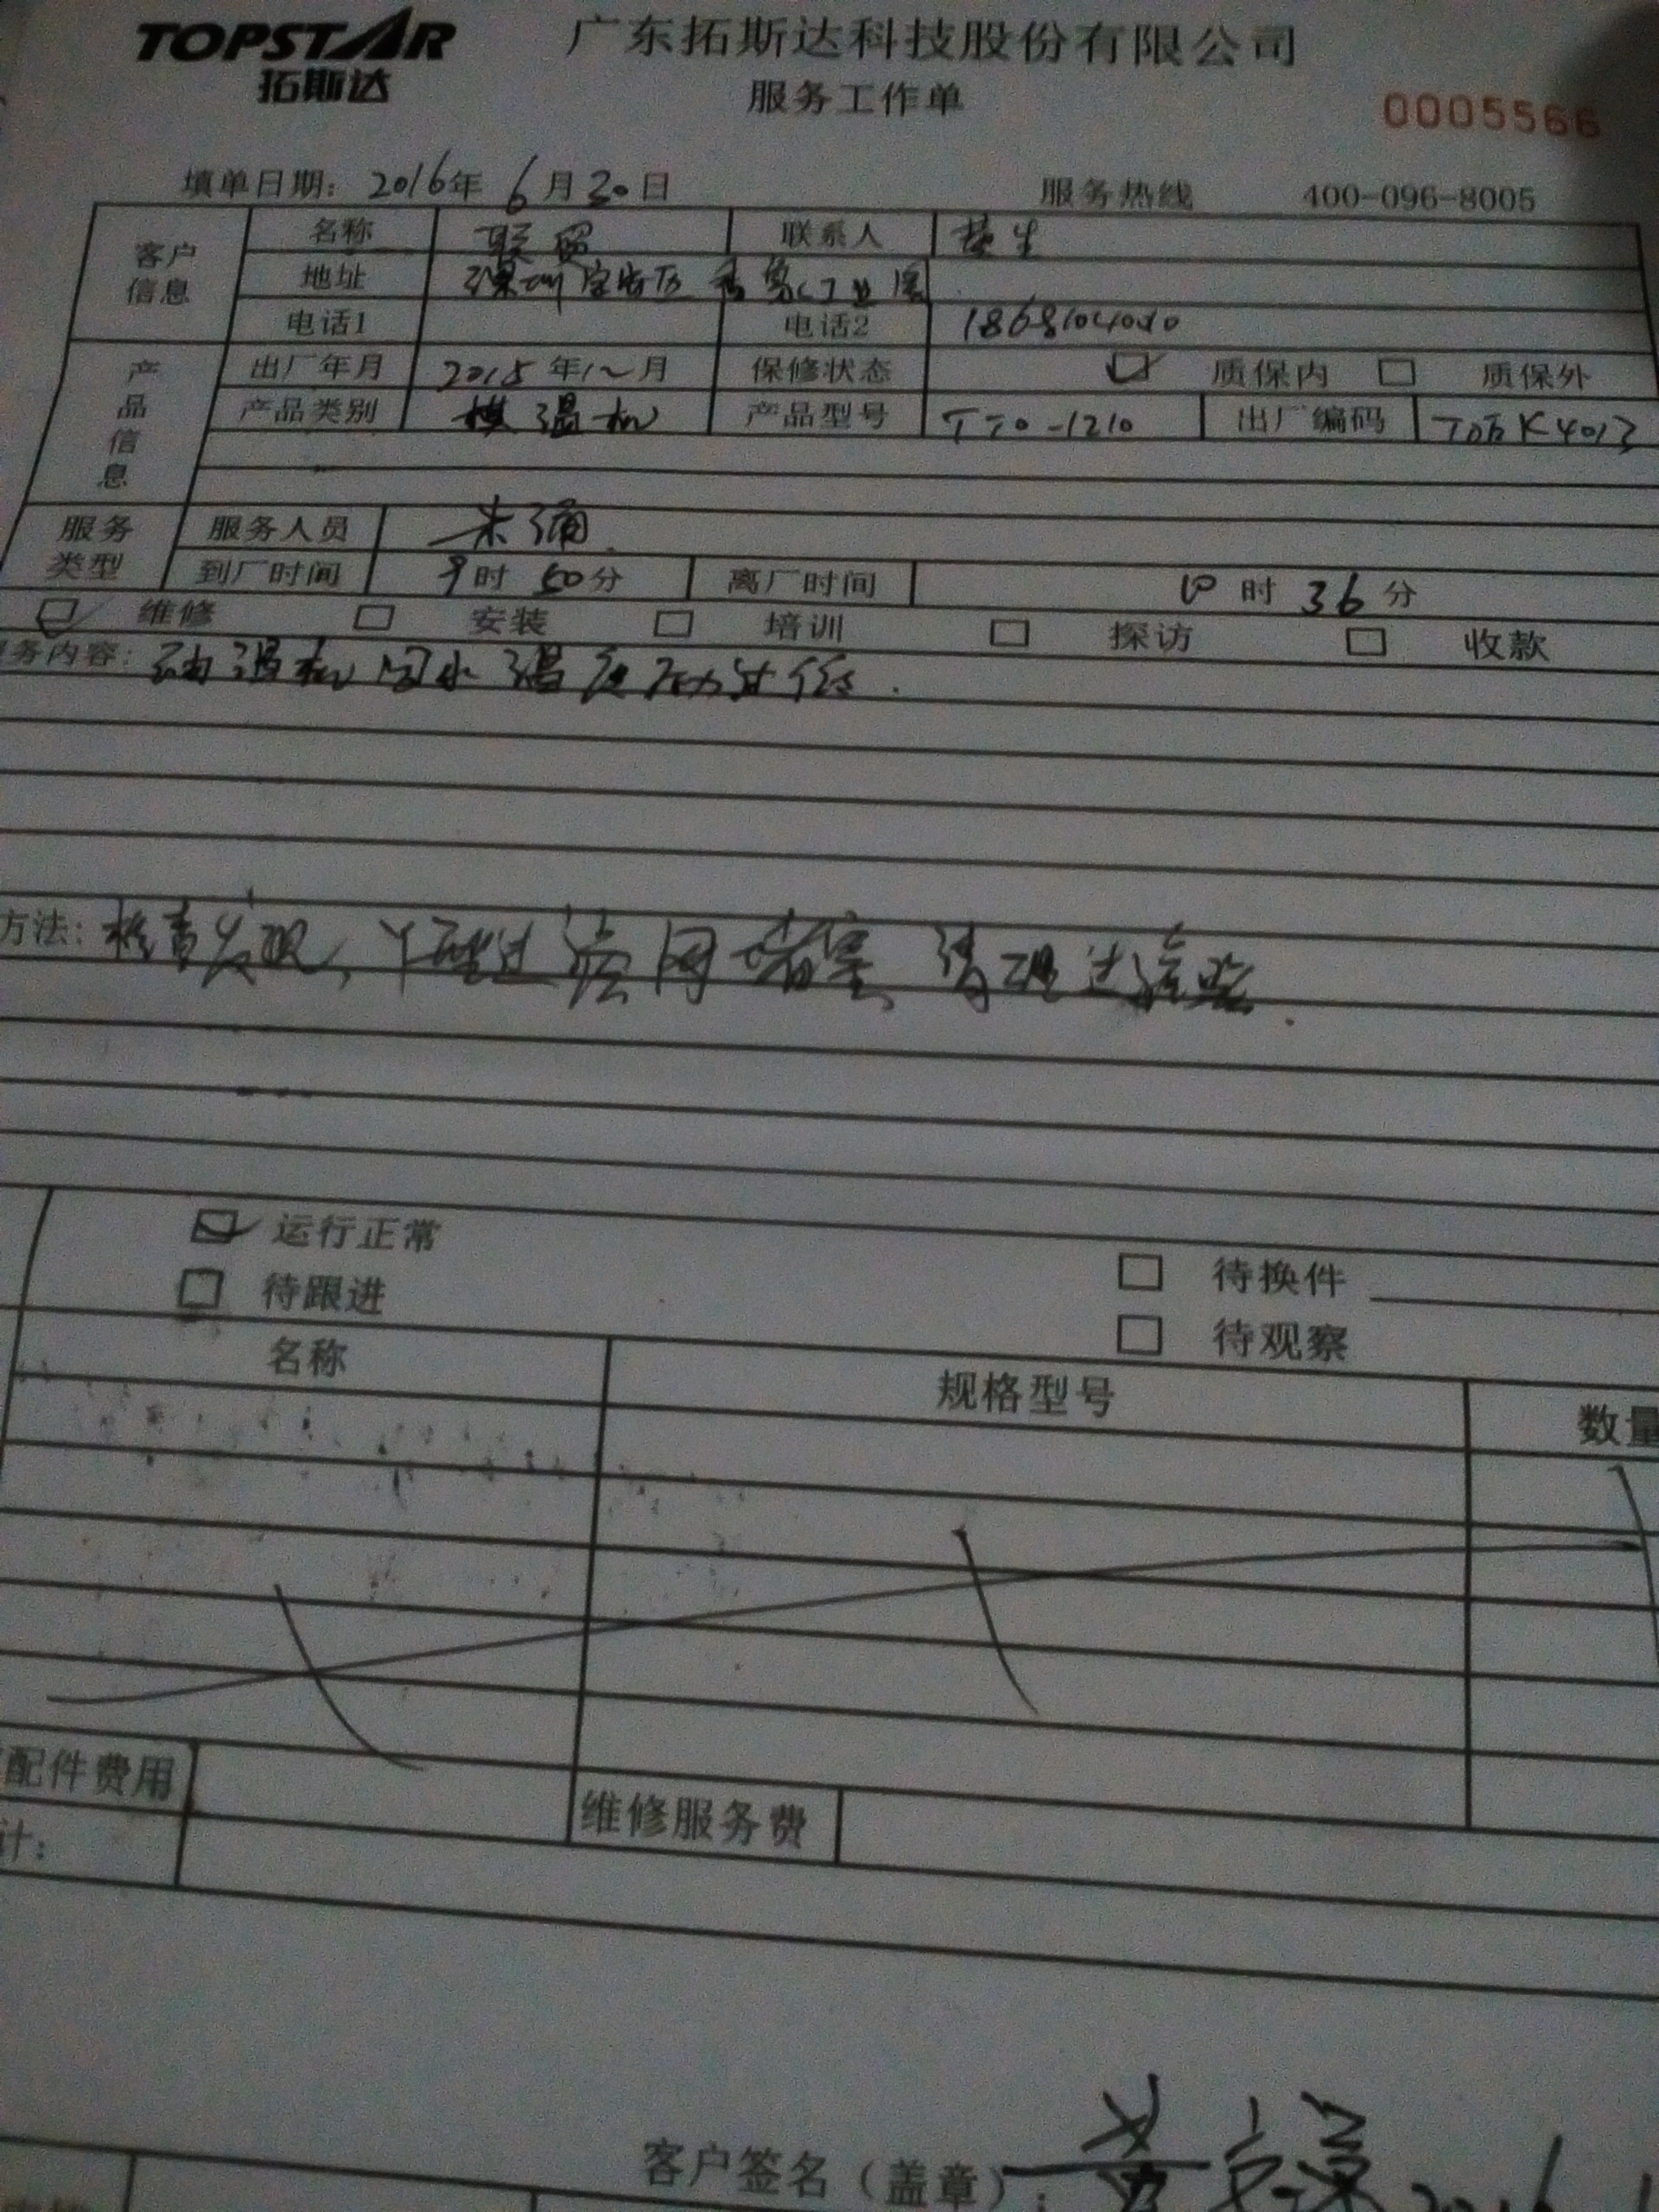 TOPSTAR 广东拓斯达科技股份有限公司
拓斯达 服务工作单
0005566
填单日期: 2016年 6月30日 服务热线 400-096-8005
客户信息 名称 联贸 联系人
地址 深圳宝安区 工业园
电话1 电话2
产品信息 出厂年月 2015年12月 保修状态 质保内 质保外
产品类别 模温机 产品型号 TTO-1210 出厂编码
服务类型 服务人员 朱涌
到厂时间 9时50分 离厂时间 10时36分
维修 安装 培训 探访 收款
务内容: 油温机回水温度压力过低.
方法: 检查发现, Y型过滤网堵塞、清理过滤
运行正常
待换件
待跟进
待观察
名称 规格型号 数量
配件费用 维修服务费
计:
客户签名(盖章): 黄